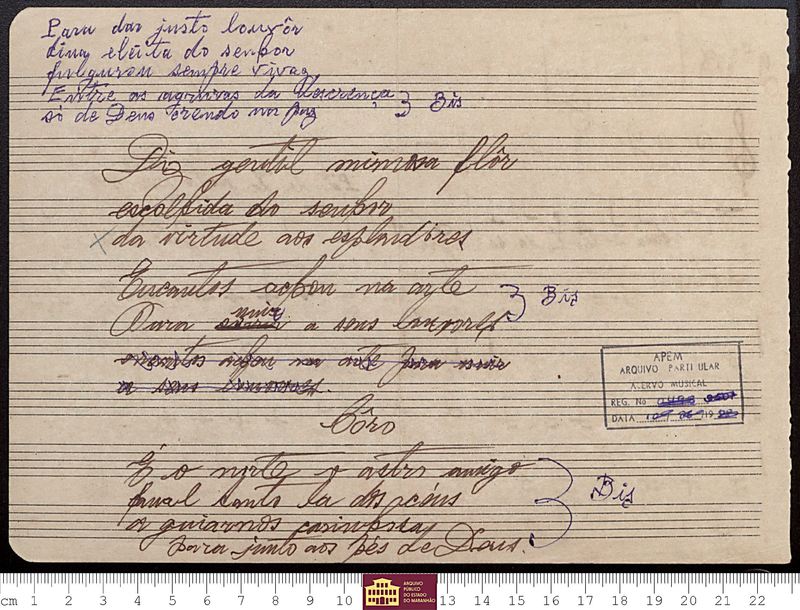 Para dar justo louvôr
eleita do senhor
fulgurou sempre
Entre as da descrença
só de Deus Bis
gentil mimosa flôr
escolhida do senhor
da virtude aos esplendores
Encantos achou na arte
Para unir a seus louvores Bis
encantos achou na arte para unir
a seus louvores.
Côro
É o norte o astro amigo
fanal santo la dos céus
a guiarnos
para junto aos pés de Deus. Bis
APEM
ARQUIVO PARTICULAR
ACERVO MUSICAL
REG. No
DATA
cm 1 2 3 4 5 6 7 8 9 10 13 14 15 16 17 18 19 20 21 22
ARQUIVO
PÚBLICO
DO ESTADO
DO MARANHÃO